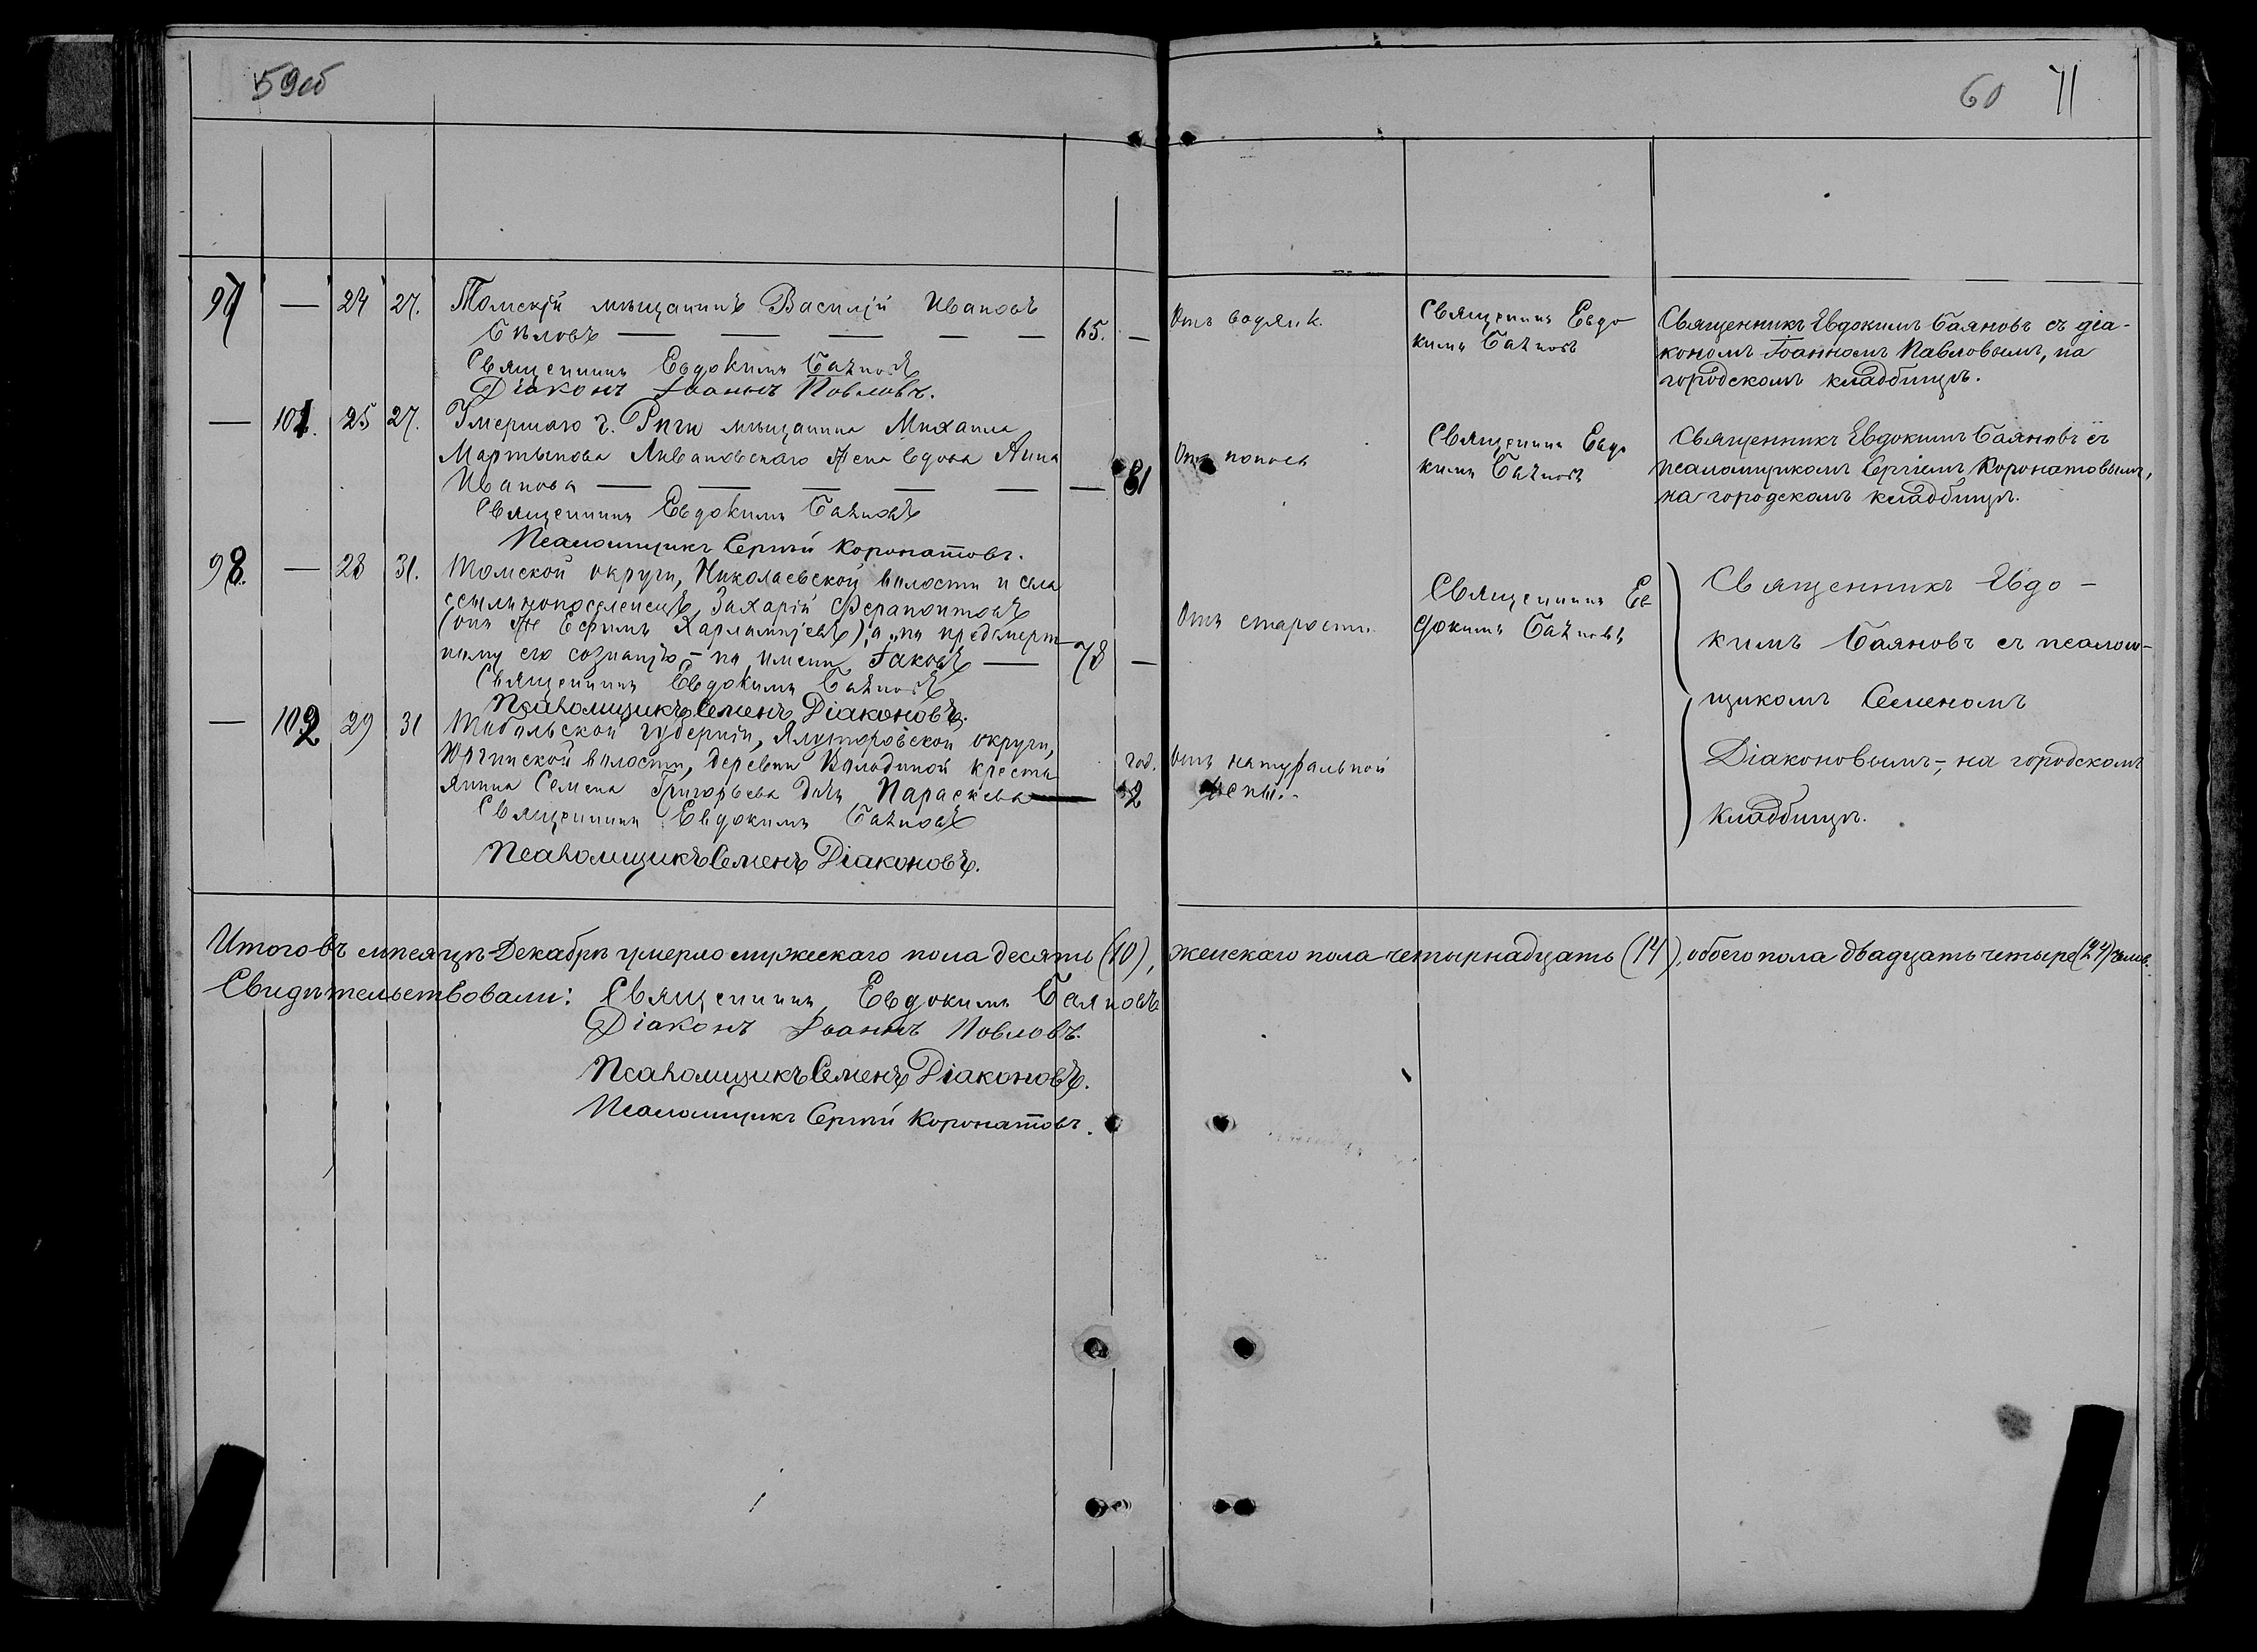 59об
60 71
97 — 24 27. Томскій мѣщанинъ Василій Ивановъ
Бѣловъ — — — — — 65. —
Священникъ Евдокимъ Баяновъ
Діаконъ Іоаннъ Павловъ.
Отъ водянк.
Священникъ Евдо
кимъ Баяновъ
Священникъ Евдокимъ Баяновъ съ діа-
кономъ Іоанномъ Павловымъ, на
городскомъ кладбищѣ.
— 101. 25 27. Умершаго г. Риги мѣщанина Михаила
Мартынова Ливановскаго жена вдова Анна
Иванова — — — — — — 81
Священникъ Евдокимъ Баяновъ
Псаломщикъ Сергѣй Коронатовъ.
Отъ поноса
Священникъ Евдо
кимъ Баяновъ
Священникъ Евдокимъ Баяновъ съ
псаломщикомъ Сергіемъ Коронатовымъ,
на городскомъ кладбищѣ.
98. — 28 31. Томской округи, Николаевской волости и села
ссыльнопоселенецъ, Захарій Ферапонтовъ
(онъ же Ефимъ Харлампіевъ), а по предсмерт-
ному его сознанію - по имени Іаковъ — 78 —
Священникъ Евдокимъ Баяновъ
Псаломщикъ Семенъ Діаконовъ.
Отъ старости.
Священникъ Ев
докимъ Баяновъ
Священникъ Евдо-
кимъ Баяновъ съ псалом-
щикомъ Семеномъ
Діаконовымъ-, на городскомъ
кладбищѣ.
— 102 29 31 Тобольской губерніи, Ялуторовской округи,
Юргинской волости, деревни Володиной крестья
янина Семена Григорьева дочь Параскева — год. 2
Священникъ Евдокимъ Баяновъ
Псаломщикъ Семенъ Діаконовъ.
Отъ натуральной
оспы.
Итого въ мѣсяцѣ Декабрѣ умерло мужескаго пола десять (10), женскаго пола четырнадцать (14), обоего пола двадцать четыре (24) челов.
Свидѣтельствовали: Священникъ Евдокимъ Баяновъ
Діаконъ Іоаннъ Павловъ.
Псаломщикъ Семенъ Діаконовъ.
Псаломщикъ Сергѣй Коронатовъ.